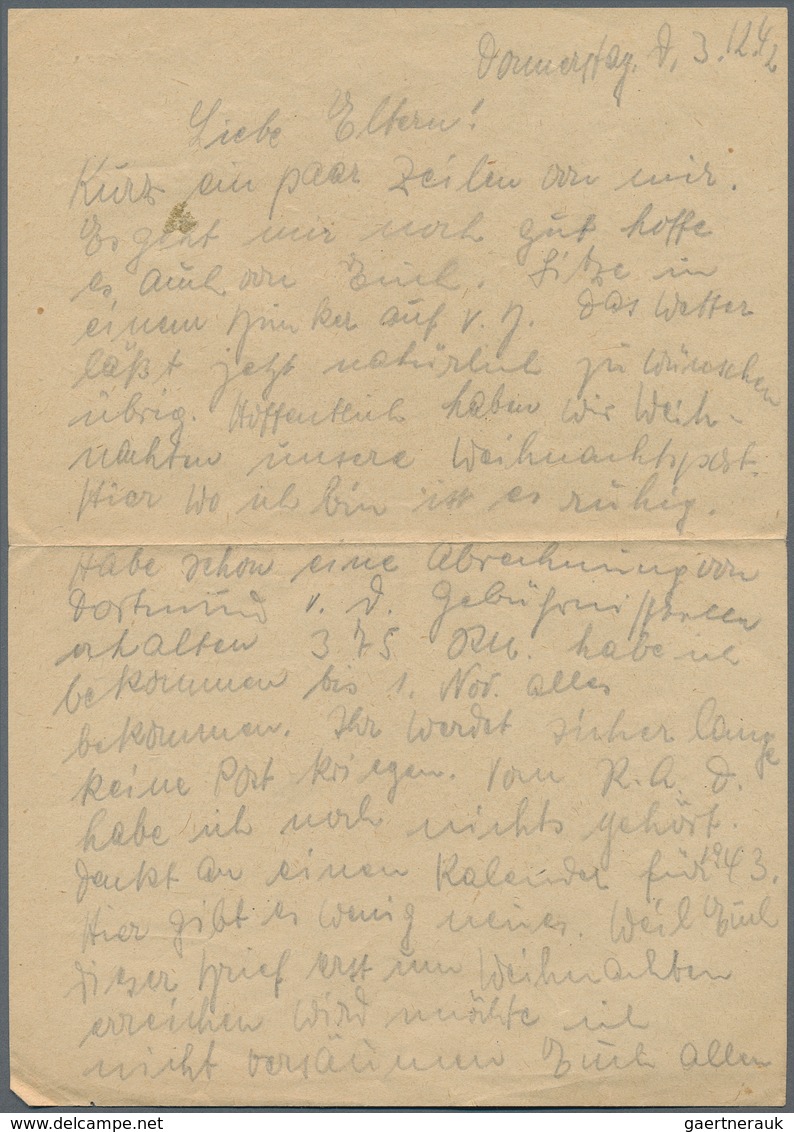 Donnerstag. d, 3.12.42
Liebe Eltern!
Kurz ein paar Zeilen von mir.
Es geht mir noch gut hoffe
es auch von Euch. Sitze in
einem Bunker auf v. Das Wetter
läßt jetzt natürlich zu wünschen
übrig. Hoffentlich haben wir Weih-
nachten unsere Weihnachtspost.
Hier wo ich bin ist es ruhig.
Habe schon eine Abrechnung von
Dortmund v. d.
erhalten 375 RM. habe ich
bekommen bis 1. Nov. alles
bekommen. Ihr werdet sicher lange
keine Post kriegen. Vom R.A.D.
habe ich noch nichts gehört.
Denkt an einen Kalender für 1943.
Hier gibt es wenig neues. Weil Euch
dieser Brief erst um Weihnachten
erreichen wird möchte ich
nicht versäumen Euch allen
gaertnerauk